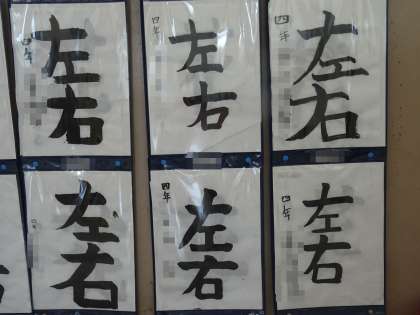 四年
左
右
四年
左
右
四年
左
右
左
右
四年
左
右
四年
左
右